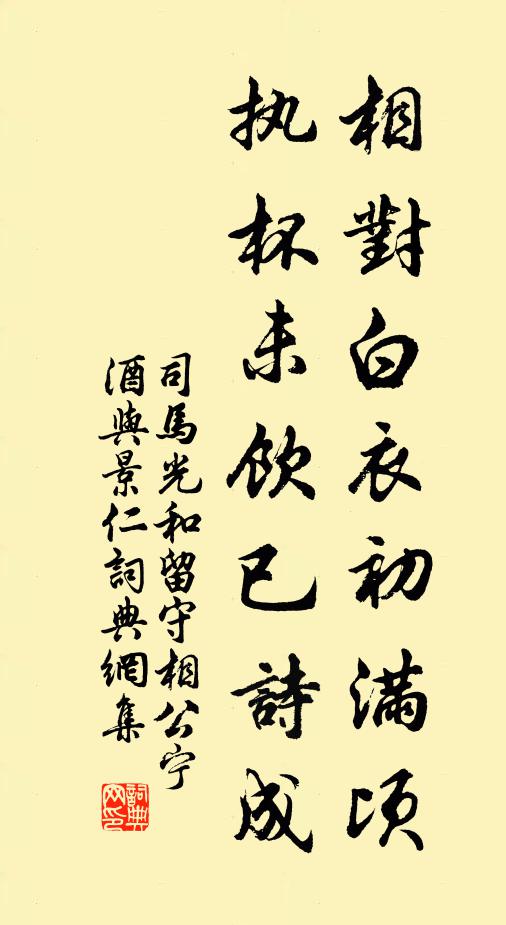 相對白衣初滿頃
执杯未飲已詩成
司馬光和留守相公宁
酒與景仁詞典網集
詞典网印